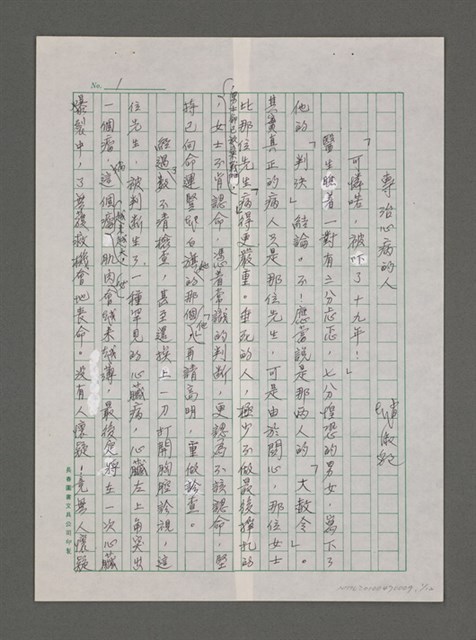 No. 1
專治心病的人
「可憐喏,被吓了十九年!」
醫生瞧着一對有三分忐忑,七分惶恐的男女,寫下了
他的「判決」結論。不!應當說是那兩人的「大赦令」。
其實真正的病人只是那位先生,可是由於關心,那位女士
比那位先生病得更嚴重。垂死的人,極少不做最後掙扎的
,女士不肯認命,憑着常識的判斷,更認為不該認命,堅
持已向命運豎起白旗的那個他再請高明,重做診查。
經過數不清檢查,甚至還挨上一刀打開胸腔診視,這
位先生,被判斷生了一種罕見的心臟病,心臟左上角突出
一個瘤,這個瘤肌肉會越來越薄,最後免將在一次心臟
爆裂中,了無復救機會地喪命。沒有人懷疑,竟無人懷疑
長春圖書文具公司印製